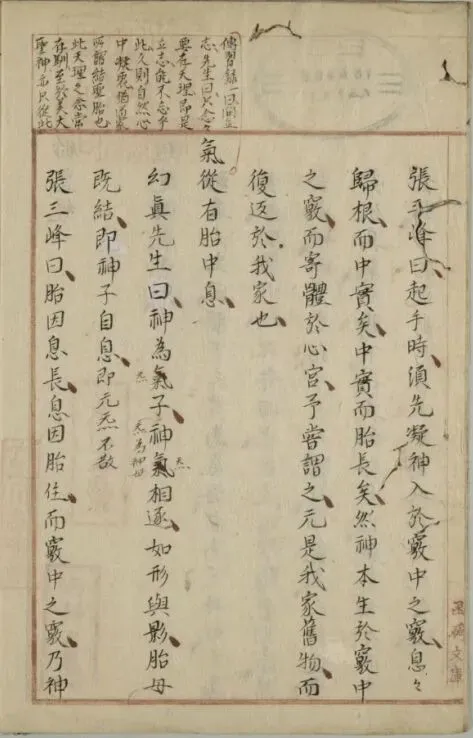 傳習錄一曰問立
志先生曰只念々
要存天理即是
立志能不忘乎
此久則自然心
中凝聚猶道家
所謂結聖胎也
此天理之念常
存馴至於美大
聖神亦只從此
張三峰曰起手時須先凝神入於竅中之竅息々
歸根而中實矣中實而胎長矣然神本生於竅中
之竅而寄體於心宮予嘗謂之元是我家舊物而
復返於我家也
氣從有胎中息
幻眞先生曰神為氣子神氣相逐如形與影胎母
炁
炁
炁為神母
既結即神子自息即元炁不散
張三峰曰胎因息長息因胎住而竅中之竅乃神
文庫